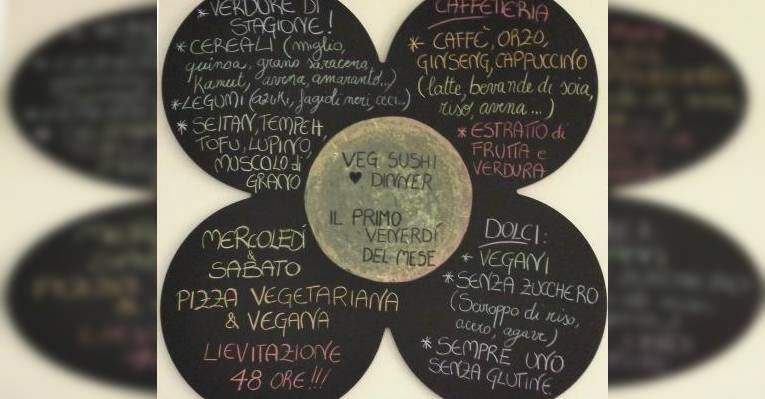 * VERDURE DI
STAGIONE!
* CEREALI (miglio,
quinoa, grano saraceno,
Kamut, avena, amaranto...)
* LEGUMI (azuki, fagioli neri, ceci..)
* SEITAN, TEMPEH,
TOFU, LUPINO,
MUSCOLO di
GRANO
CAFFETTERIA
* CAFFÈ, ORZO,
GINSENG, CAPPUCCINO
(latte, bevande di soia,
riso, avena...)
* ESTRATTO di
FRUTTA e
VERDURA
VEG SUSHI
♥ DINNER
IL PRIMO
VENERDÍ
DEL MESE
MERCOLEDÍ
&
SABATO
PIZZA VEGETARIANA
& VEGANA
LIEVITAZIONE
48 ORE!!!
DOLCI:
* VEGANI
* SENZA ZUCCHERO
(Sciroppo di riso,
acero, agave)
* SEMPRE UNO
SENZA GLUTINE